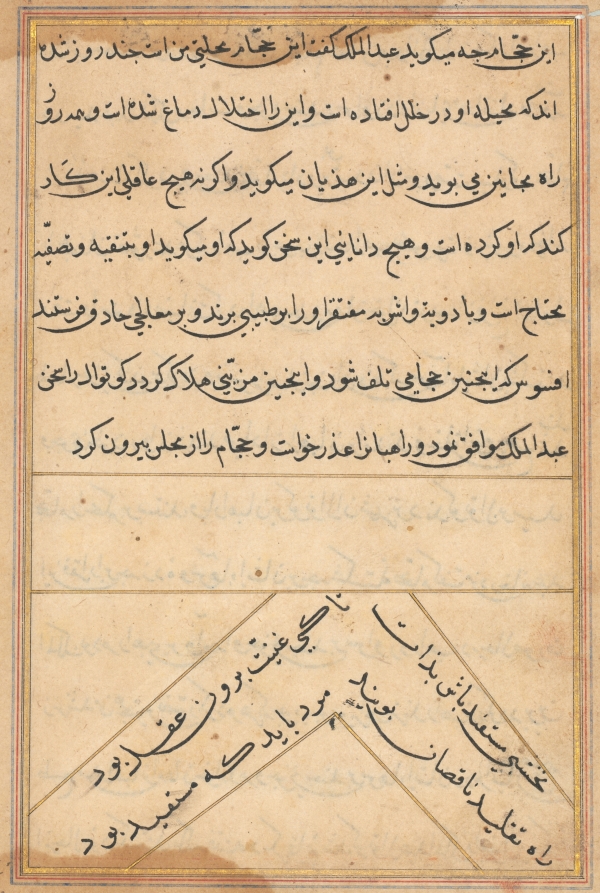 این حجّام جه میکوید عبدالملک کفت این حجّام محلتی من است جند روز شده
اند که مخیله او در خلل افتاده است و این را اختلال دماغ شده است و همه روز
راه مجانین می بوید و مثل این هذیان میکوید واکر نه هیج عاقلی این کار
کند که او کرده است و هیج دانایی این سخن کوید که او میکوید او بتنقیه و تصفیه
محتاج است و بادویة و اشربه مفتقر او را بر طبیبی برند و بر معالجی حاذق فرستند
افسوس که اینجنین حجامی تلف شود و اینجنین مزیّنی هلاک کردد کوتوال را سخن
عبدالملک موافق نمود و راهبانرا عذر خواست و حجّام را از مجلس بیرون کرد
نخشبی مستفید باش بذات
تا کجی غنیت برون عقد بود
راه تقلید ناقصان بویند
مرد باید که مستفید بود